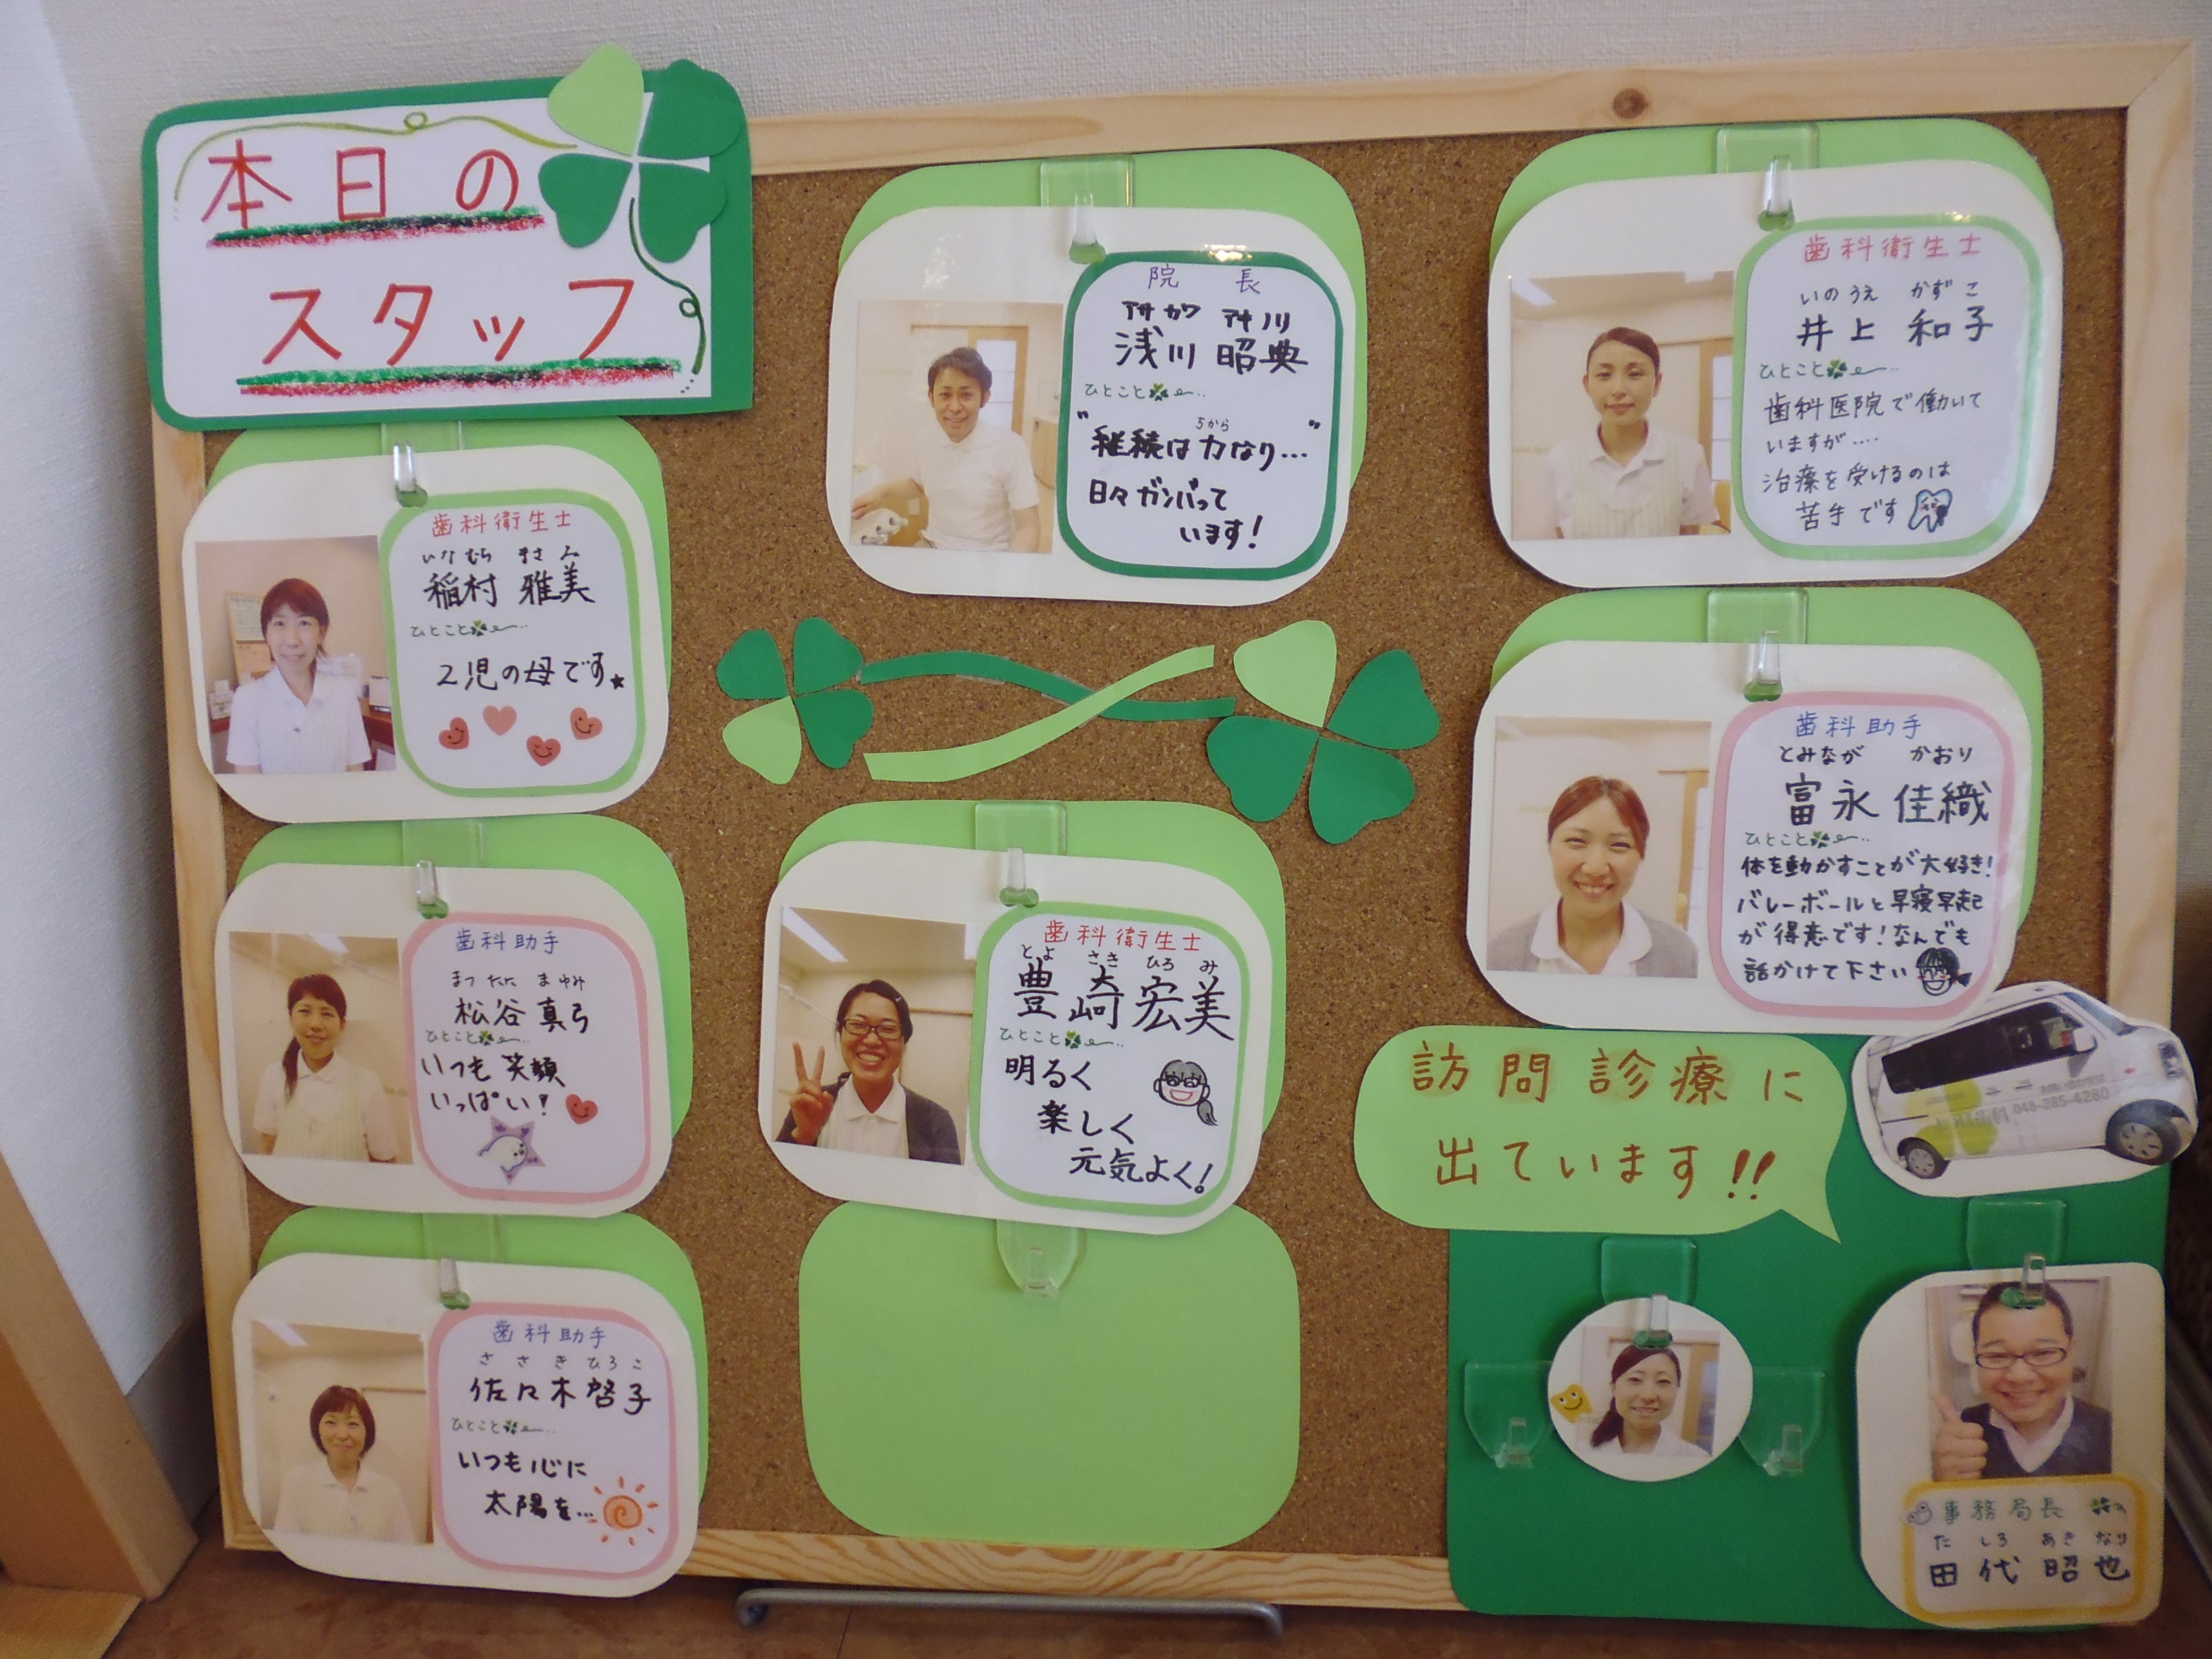 本日の
スタッフ
院長
アサカワ アキノリ
浅川 昭典
ひとこと
"継続は力なり…"
ちから
日々ガンバって
います!
歯科衛生士
いのうえ かずこ
井上 和子
ひとこと
歯科医院で働いて
いますが‥‥
治療を受けるのは
苦手です
歯科衛生士
いなむら まさみ
稲村 雅美
ひとこと
2児の母です★
歯科助手
とみなが かおり
富永 佳織
ひとこと
体を動かすことが大好き!
バレーボールと早寝早起
が得意です!なんでも
話かけて下さい
歯科助手
まつたに まゆみ
松谷 真弓
ひとこと
いつも笑顔
いっぱい!
歯科衛生士
とよ さき ひろ み
豊崎宏美
ひとこと
明るく
楽しく
元気よく!
訪問診療に
出ています!!
048-285-4280
歯科助手
ささきひろこ
佐々木啓子
ひとこと
いつも心に
太陽を…
事務局長
たしろ あきなり
田代昭也